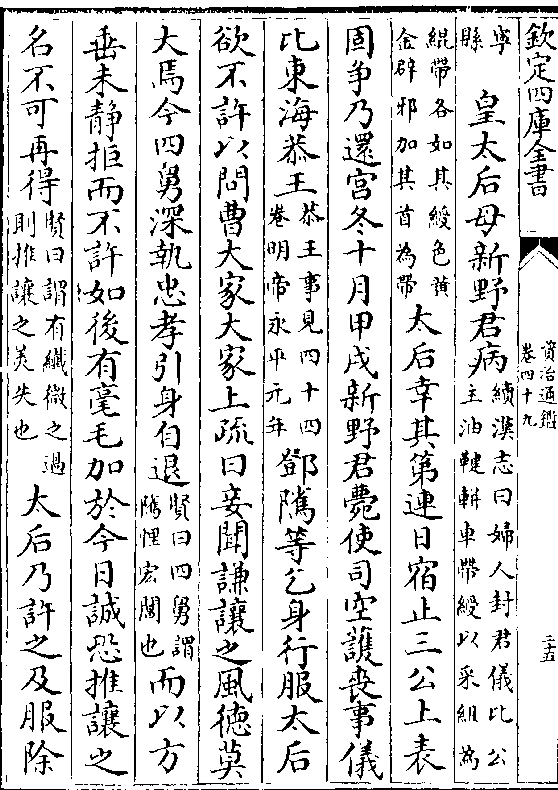 欽定四庫全書
資治通鑑
卷四十九
三五
寧
縣
皇太后母新野君病
續漢志曰婦人封君儀比公
主油軿軿車帶綬以采組為
緄帶各如其綬色黃
金辟邪加其首為帶
太后幸其第連日宿止三公上表
固争乃還宫冬十月甲戌新野君薨使司空護喪事儀
比東海恭王
恭王事見四十四
卷明帝永平元年
鄧隲等乞身行服太后
欲不許以問曹大家大家上疏曰妾聞謙讓之風徳莫
大焉今四舅深執忠孝引身自退
賢曰四舅謂
隲悝宏閶也
而以方
垂未静拒而不許如後有毫毛加於今日誠恐推讓之
名不可再得
賢曰謂有纎微之過
則推讓之美失也
太后乃許之及服除